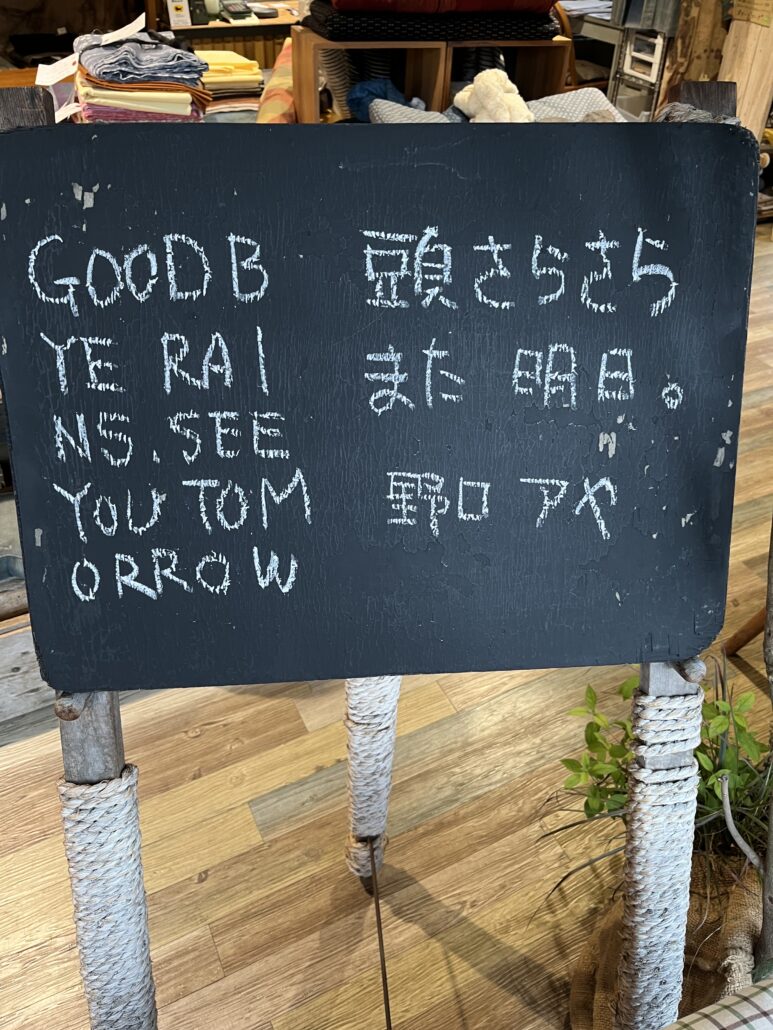 GOODB
YE RAI
NS. SEE
YOU TOM
ORROW
頭さらさら
また 明日。
野口 アヤ